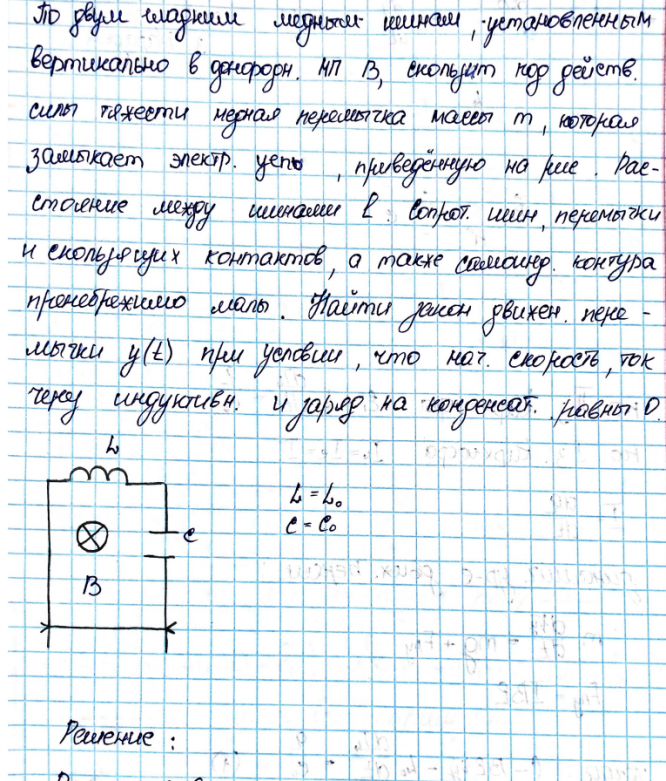 По двум гладким медным шинам, установленным
вертикально в однородн. МП В, скользит под действ.
силы тяжести медная перемычка массы m, которая
замыкает электр. цепь, приведённую на рис. Рас-
стояние между шинами ℓ. Сопрот. шин, перемычки
и скользящих контактов, а также самоинд. контура
пренебрежимо малы. Найти закон движен. пере-
мычки y(t) при условии, что нач. скорость, ток
через индуктивн. и заряд на конденсат. равны 0.
L
L = L₀
C = C₀
C
B
Решение: